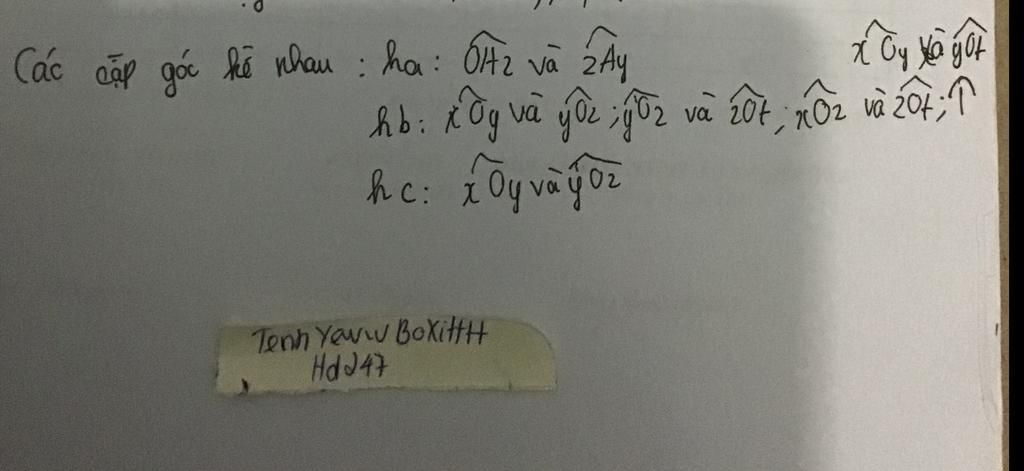 Các cặp góc kề nhau : ha: OAz và zAy
hb: xOy và yOz ; yOz và zOt ; xOz và zOt ; ↑ xOy và yOt
hc: xOy và yOz
Tenh Yeww BoXiHH
Hd247